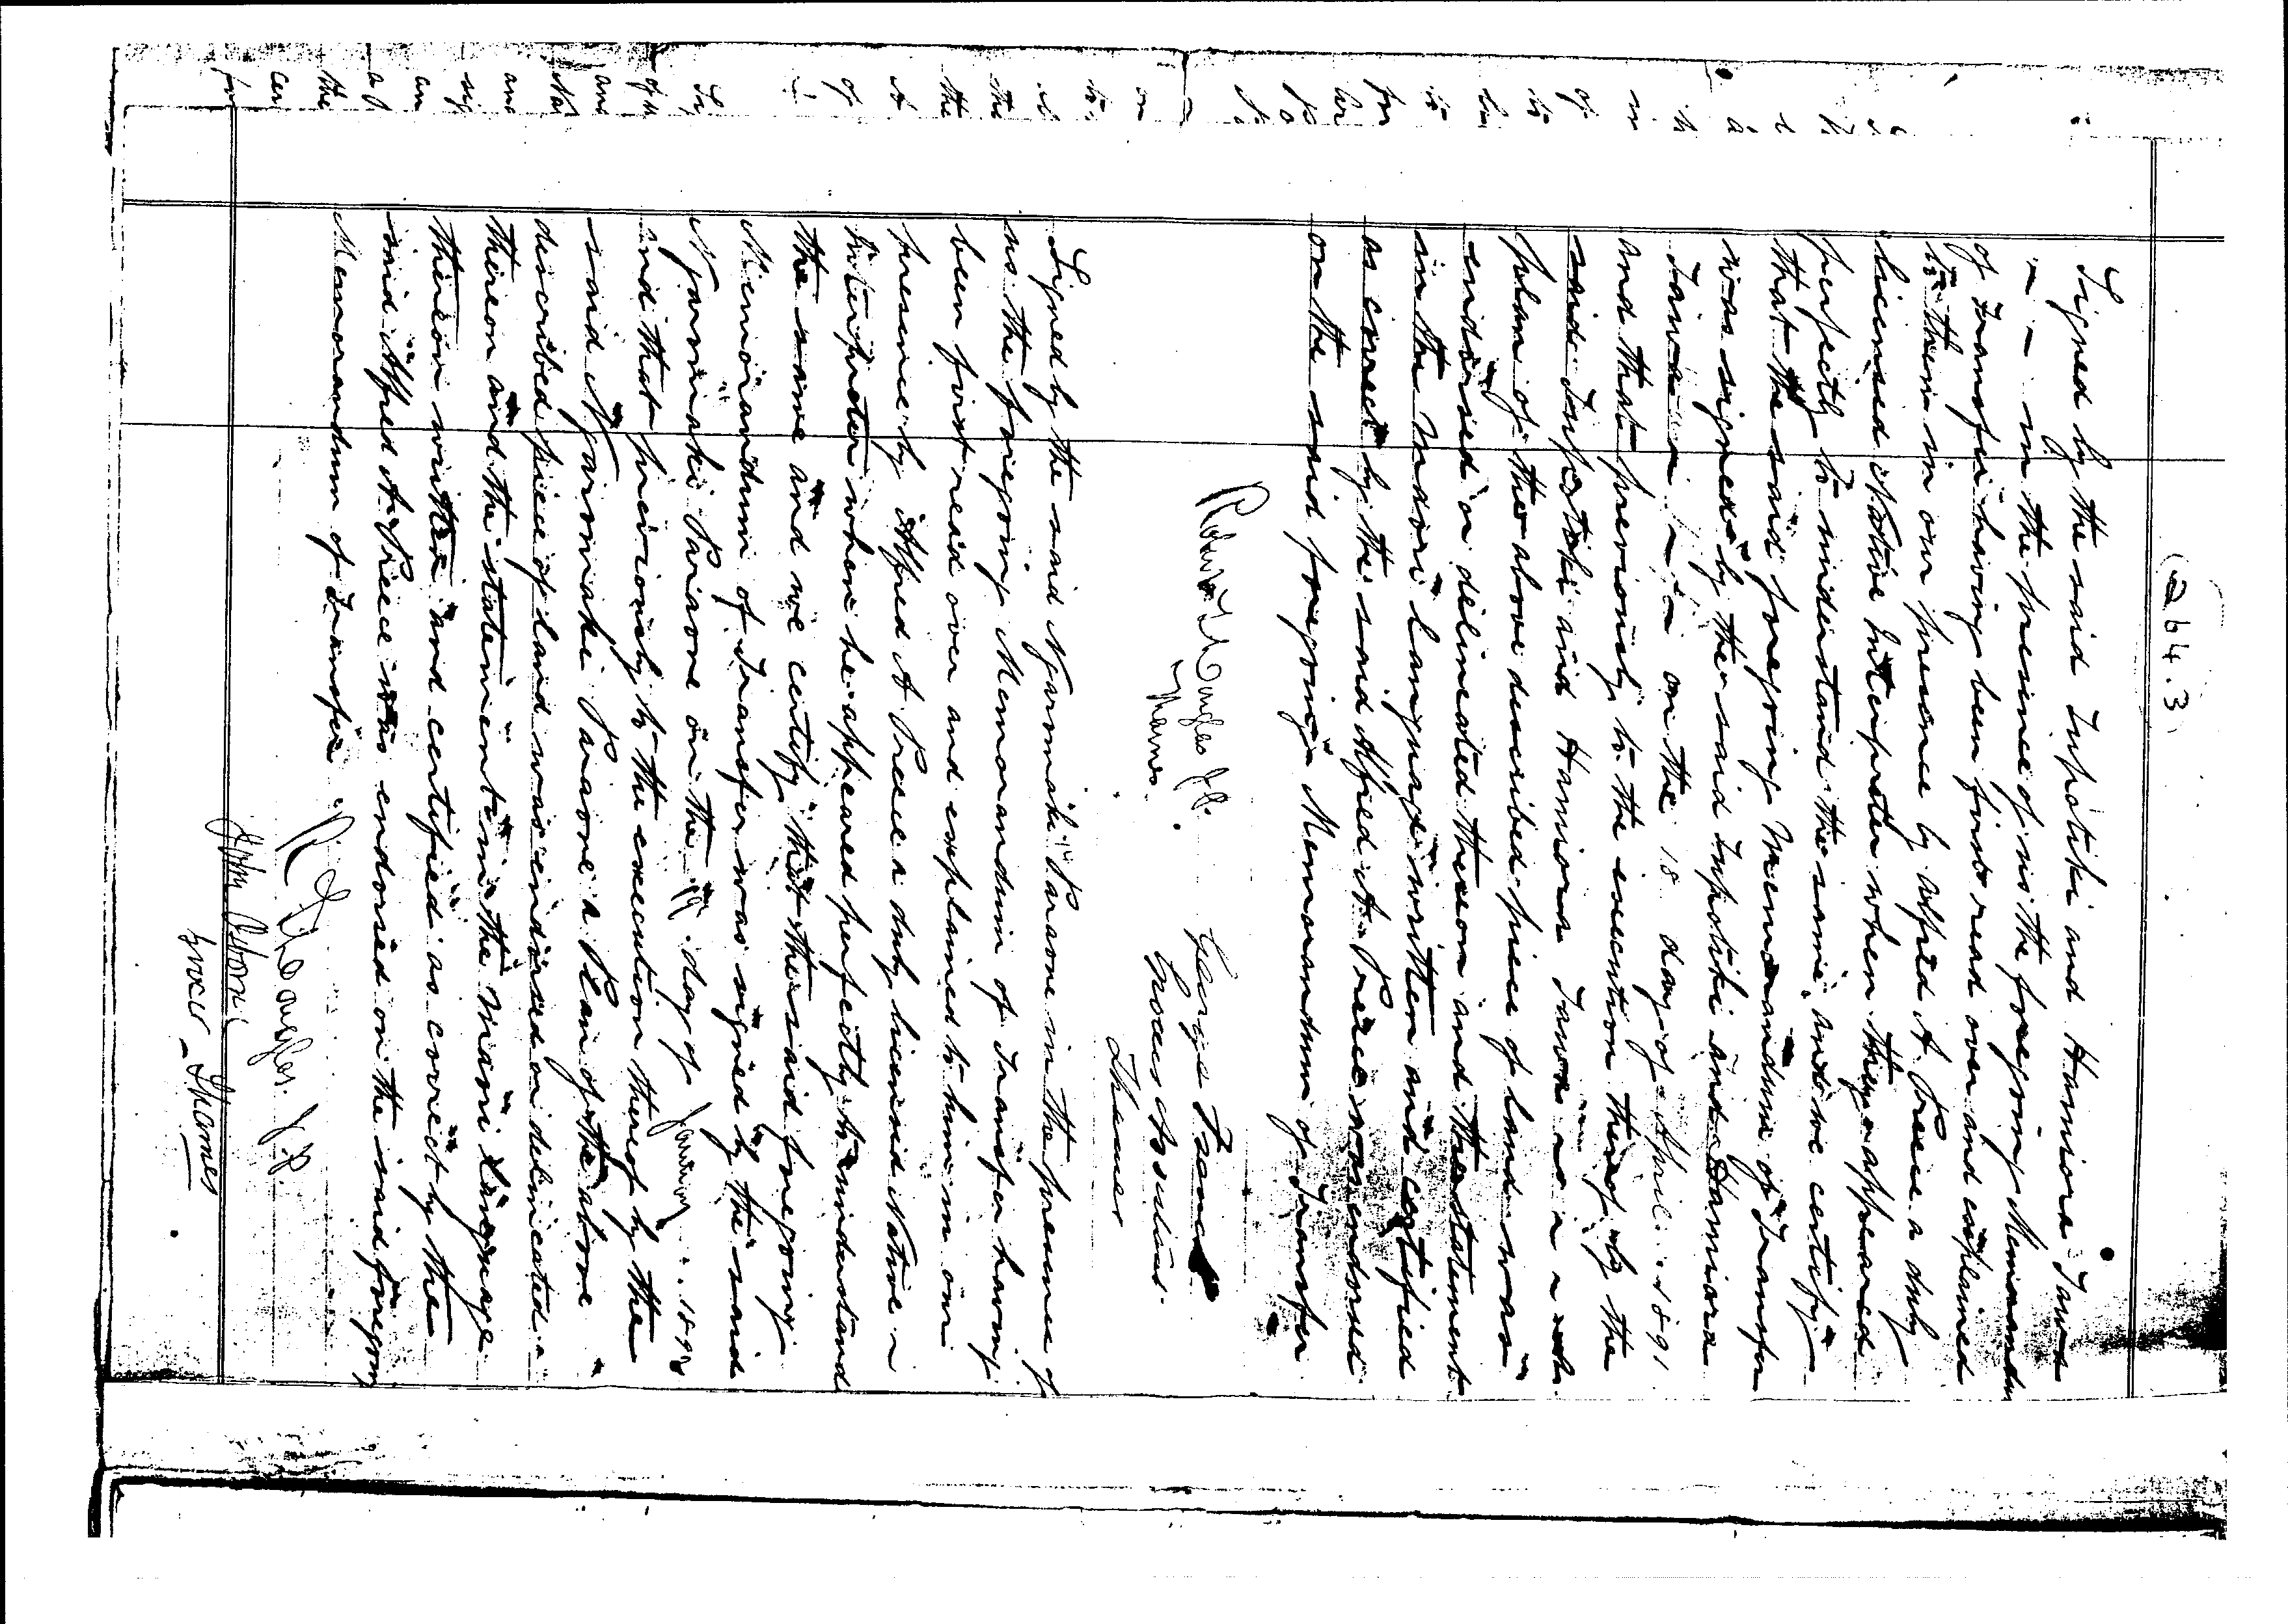 264.3
Signed by the said Inpotiki and Hamiora Tawa
in the presence of us the foregoing Memorandum
of Transfer having been first read over and explained
to them in our presence by Alfred A Preece a duly
licensed Native Interpreter when they appeared
perfectly to understand the same and we certify
that the said foregoing Memorandum of Transfer
was signed by the said Inpotiki and Hamiora
Tawa on the 18 day of April 1891
and that previously to the execution thereof by the
said Inpotiki and Hamiora Tawa a
plan of the above described piece of land was
endorsed or delineated thereon and the statement
in the Maori language written and certified
as correct by the said Alfred A Preece was endorsed
on the said foregoing Memorandum of Transfer
J.P.
Thames
George
Grocers Assistant
Thames
Signed by the said Ngarimaki Paraone in the presence of
us the foregoing Memorandum of Transfer having
been first read over and explained to him in our
presence by Alfred A Preece a duly licensed Native
Interpreter when he appeared perfectly to understand
the same and we certify that the said foregoing
Memorandum of Transfer was signed by the said
Ngarimaki Paraone on the 19 day of January 189
and that previously to the execution thereof by the
said Ngarimaki Paraone a Plan of the above
described piece of land was endorsed or delineated
thereon and the statement in the Maori language
thereon written and certified as correct by the
said Alfred A Preece was endorsed on the said foregoing
Memorandum of Transfer
J.P.
John
Grocer Thames